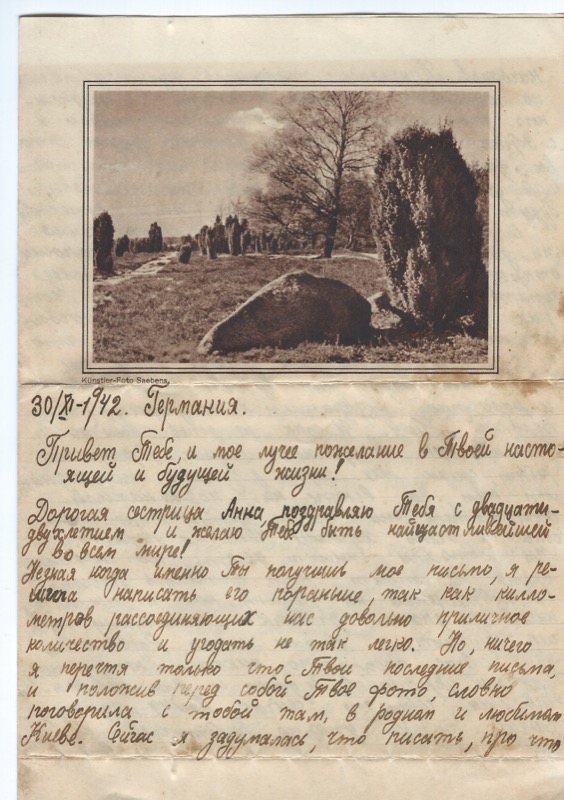 Künstler-Foto Saebens.
30/XI-1942. Германия.
Привет Тебе, и мое лучее пожелание в Твоей насто-
ящей и будущей жизни!
Дорогая сестрица Анна, поздравляю Тебя с двадцати-
двухлетием и желаю Тебе быть найщастливайшей
во всем мире!
Незная когда именно Ты получишь мое письмо, я ре-
шила написать его пораньше, так как кило-
метров рассоединяющих нас довольно приличное
количество и угодать не так легко. Но, ничего
я перечтя только что Твои последние письма,
и положив перед собой Твое фото, словно
поговорила с тобой там, в родном и любимом
Киеве. Сейчас я задумалась, что писать, про что